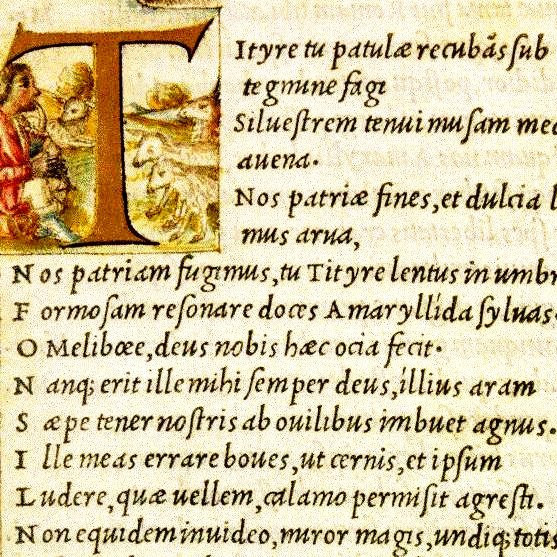 Tityre tu patulæ recubãs ſub
tegmine fagi
Silueſtrem tenui muſam med
auena.
Nos patriæ fines, et dulcia l
mus arua,
Nos patriam fugimus, tu Tityre lentus in umbr
Formoſam reſonare doces Amaryllida ſyluas.
O Melibœe, deus nobis hæc ocia fecit.
Nanq; erit ille mihi ſemper deus, illius aram
Sæpe tener noſtris ab ouilibus imbuet agnus.
Ille meas errare boues, ut cernis, et ipſum
Ludere, quæ uellem, calamo permiſit agreſti.
Non equidem inuideo, miror magis, undiq; totis